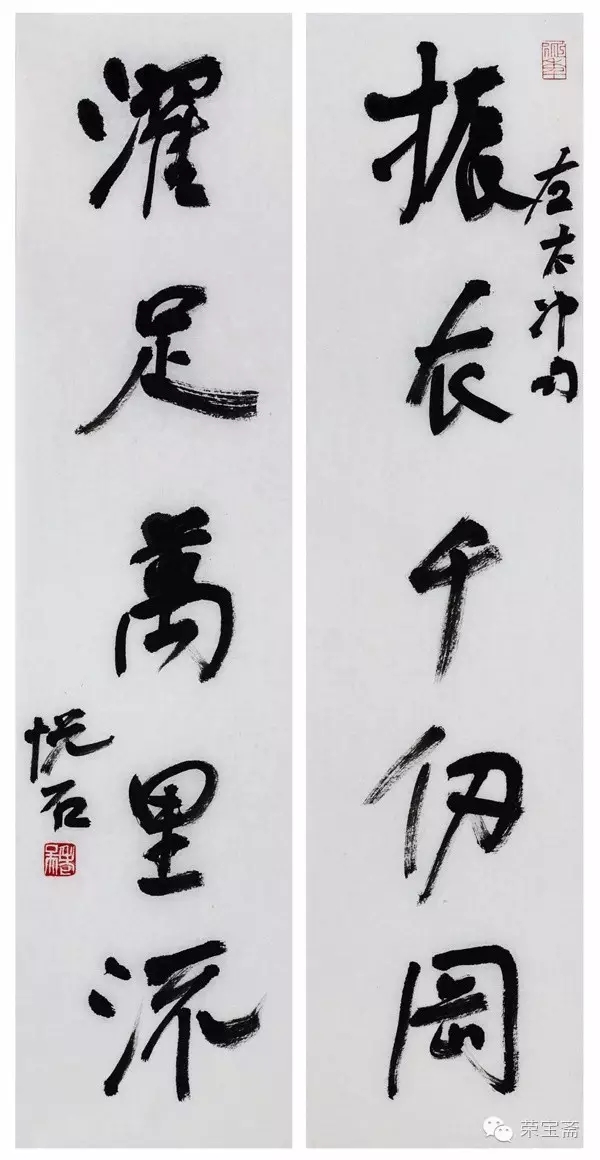 振衣千仞岡
左太冲句
濯足萬里流
悦石
荣宝斋